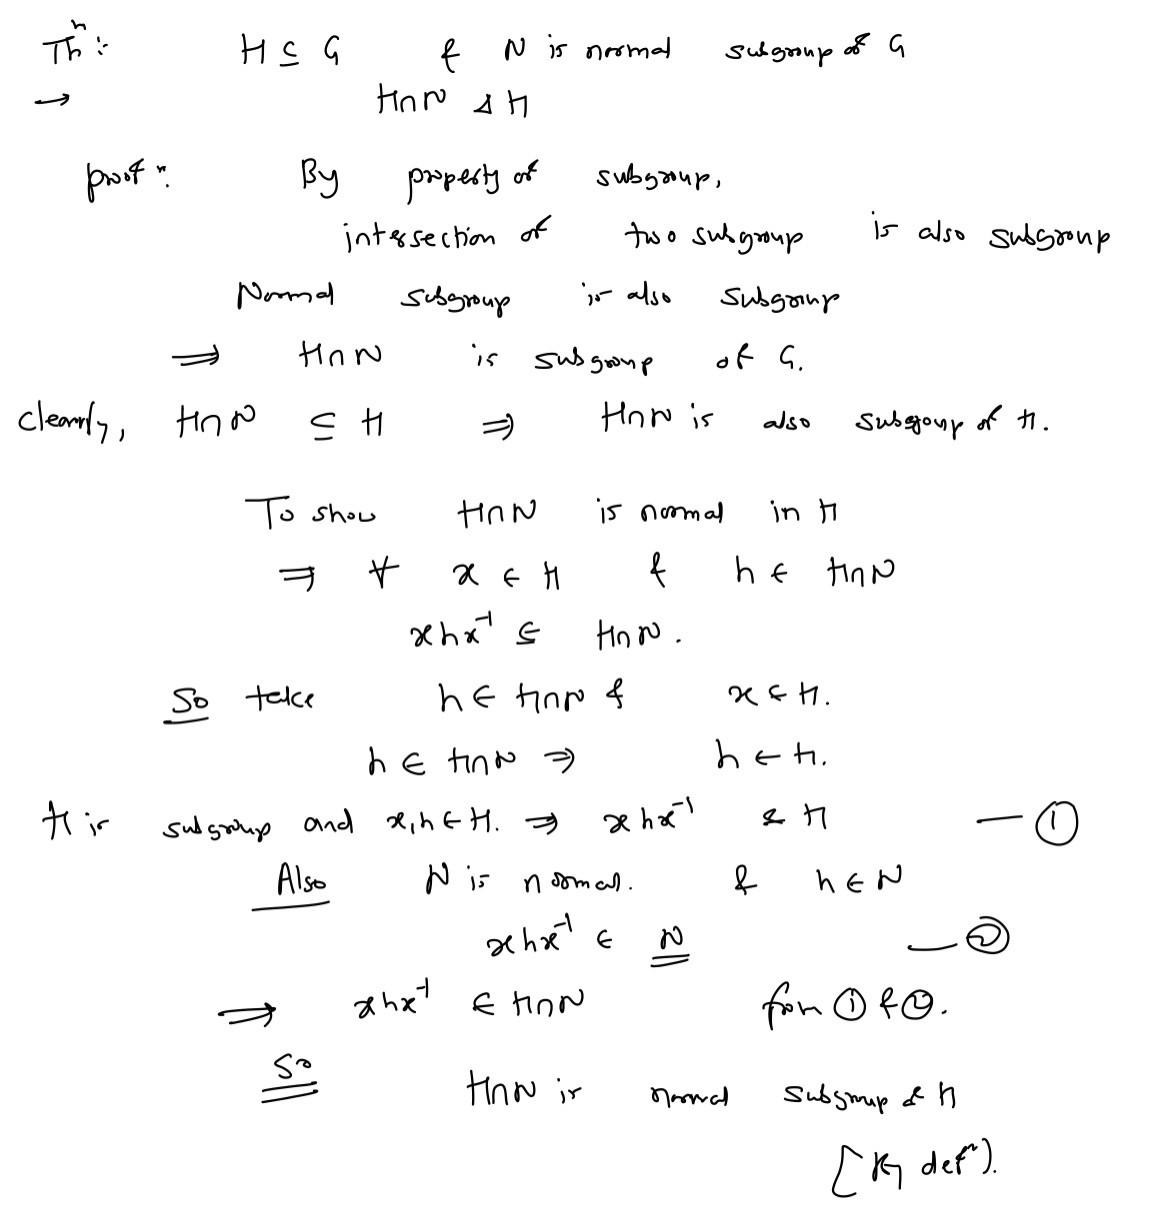 Thⁿ :- H ⊆ G & N is normal subgroup of G
→ H∩N ⊴ H
proof :- By property of subgroup,
intersection of two subgroup is also subgroup
Normal subgroup is also subgroup
⇒ H∩N is subgroup of G.
clearly, H∩N ⊆ H ⇒ H∩N is also subgroup of H.
To show H∩N is normal in H
⇒ ∀ x ∈ H & h ∈ H∩N
xhx⁻¹ ⊆ H∩N.
So take h ∈ H∩N & x ∈ H.
h ∈ H∩N ⇒ h ∈ H.
H is subgroup and x,h ∈ H. ⇒ xhx⁻¹ ∈ H — ①
Also N is normal. & h ∈ N
xhx⁻¹ ∈ N — ②
⇒ xhx⁻¹ ∈ H∩N from ① & ②.
So
H∩N is normal subgroup of H
[By defⁿ).